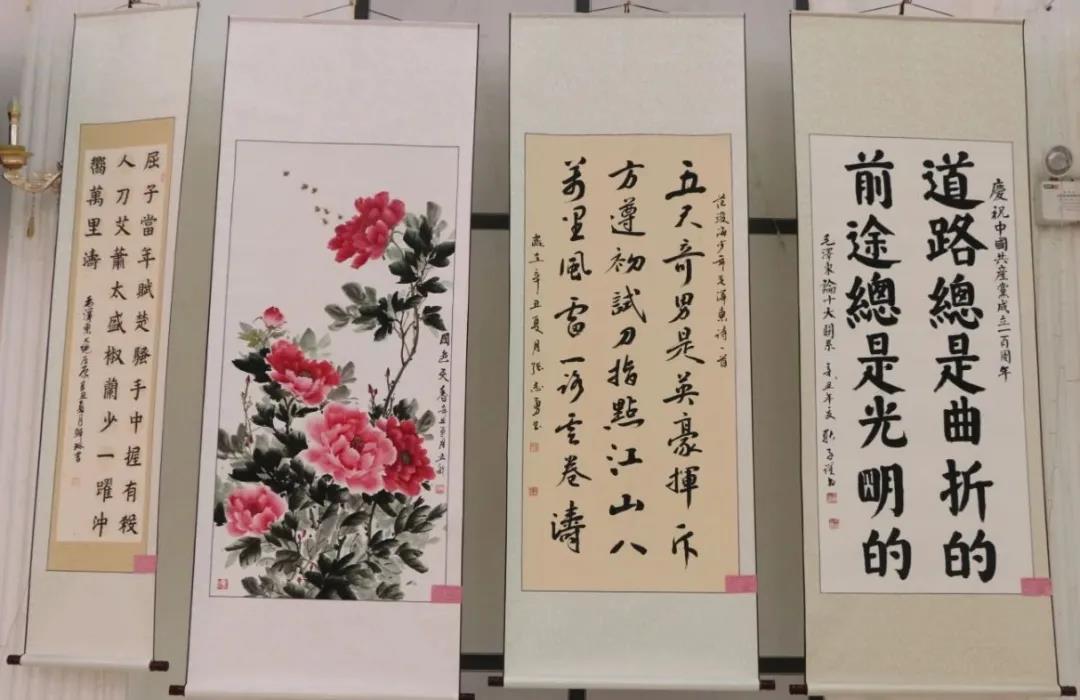 屈子當年賦楚騷手中握有殺
人刀艾蕭太盛椒蘭少一躍沖
嚮萬里濤
毛澤東七絕屈原辛丑夏月
國色天香辛丑
五奇男是英豪揮斥
方遒初試刀指點江山八
萬里風雷一路雲卷濤
少年毛澤東詩一首
歲在辛丑夏月張志勇書
慶祝中國共產黨成立一百周年
道路總是曲折的
前途總是光明的
毛澤東論十大關系 辛丑年夏